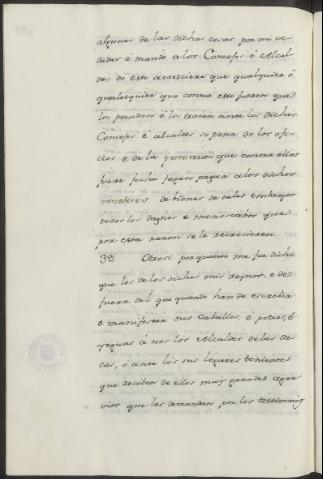 algunas de las dichas cosas por mi ve-
dadas é mando alos Concejos é Alcal-
des do esto acaesciere que qualquiera ó
qualesquier que contra esto fueren que
los prendan é los traian ante los dichos
Concejos é alcaldes so pena de los ofi-
cios e de la protestacion que contra ellos
fuere fecha fagan pagar a los dichos
mercaderes de bienes de tales embargos
todos los dagnos e menoscabos que
por esta razon se le recrecieren
32 Otrosi por quanto me fue dicho
que los de los dichos mis reynos, e de
fuera del que quando han de escrebir
e manifestar sus caballos, é potros, é
yeguas á nos los Alcaldes de las de
cas, ó ante los sus lugares tenientes
que reciben de ellos muy grandes agra-
vios que les demandan por los testimonios